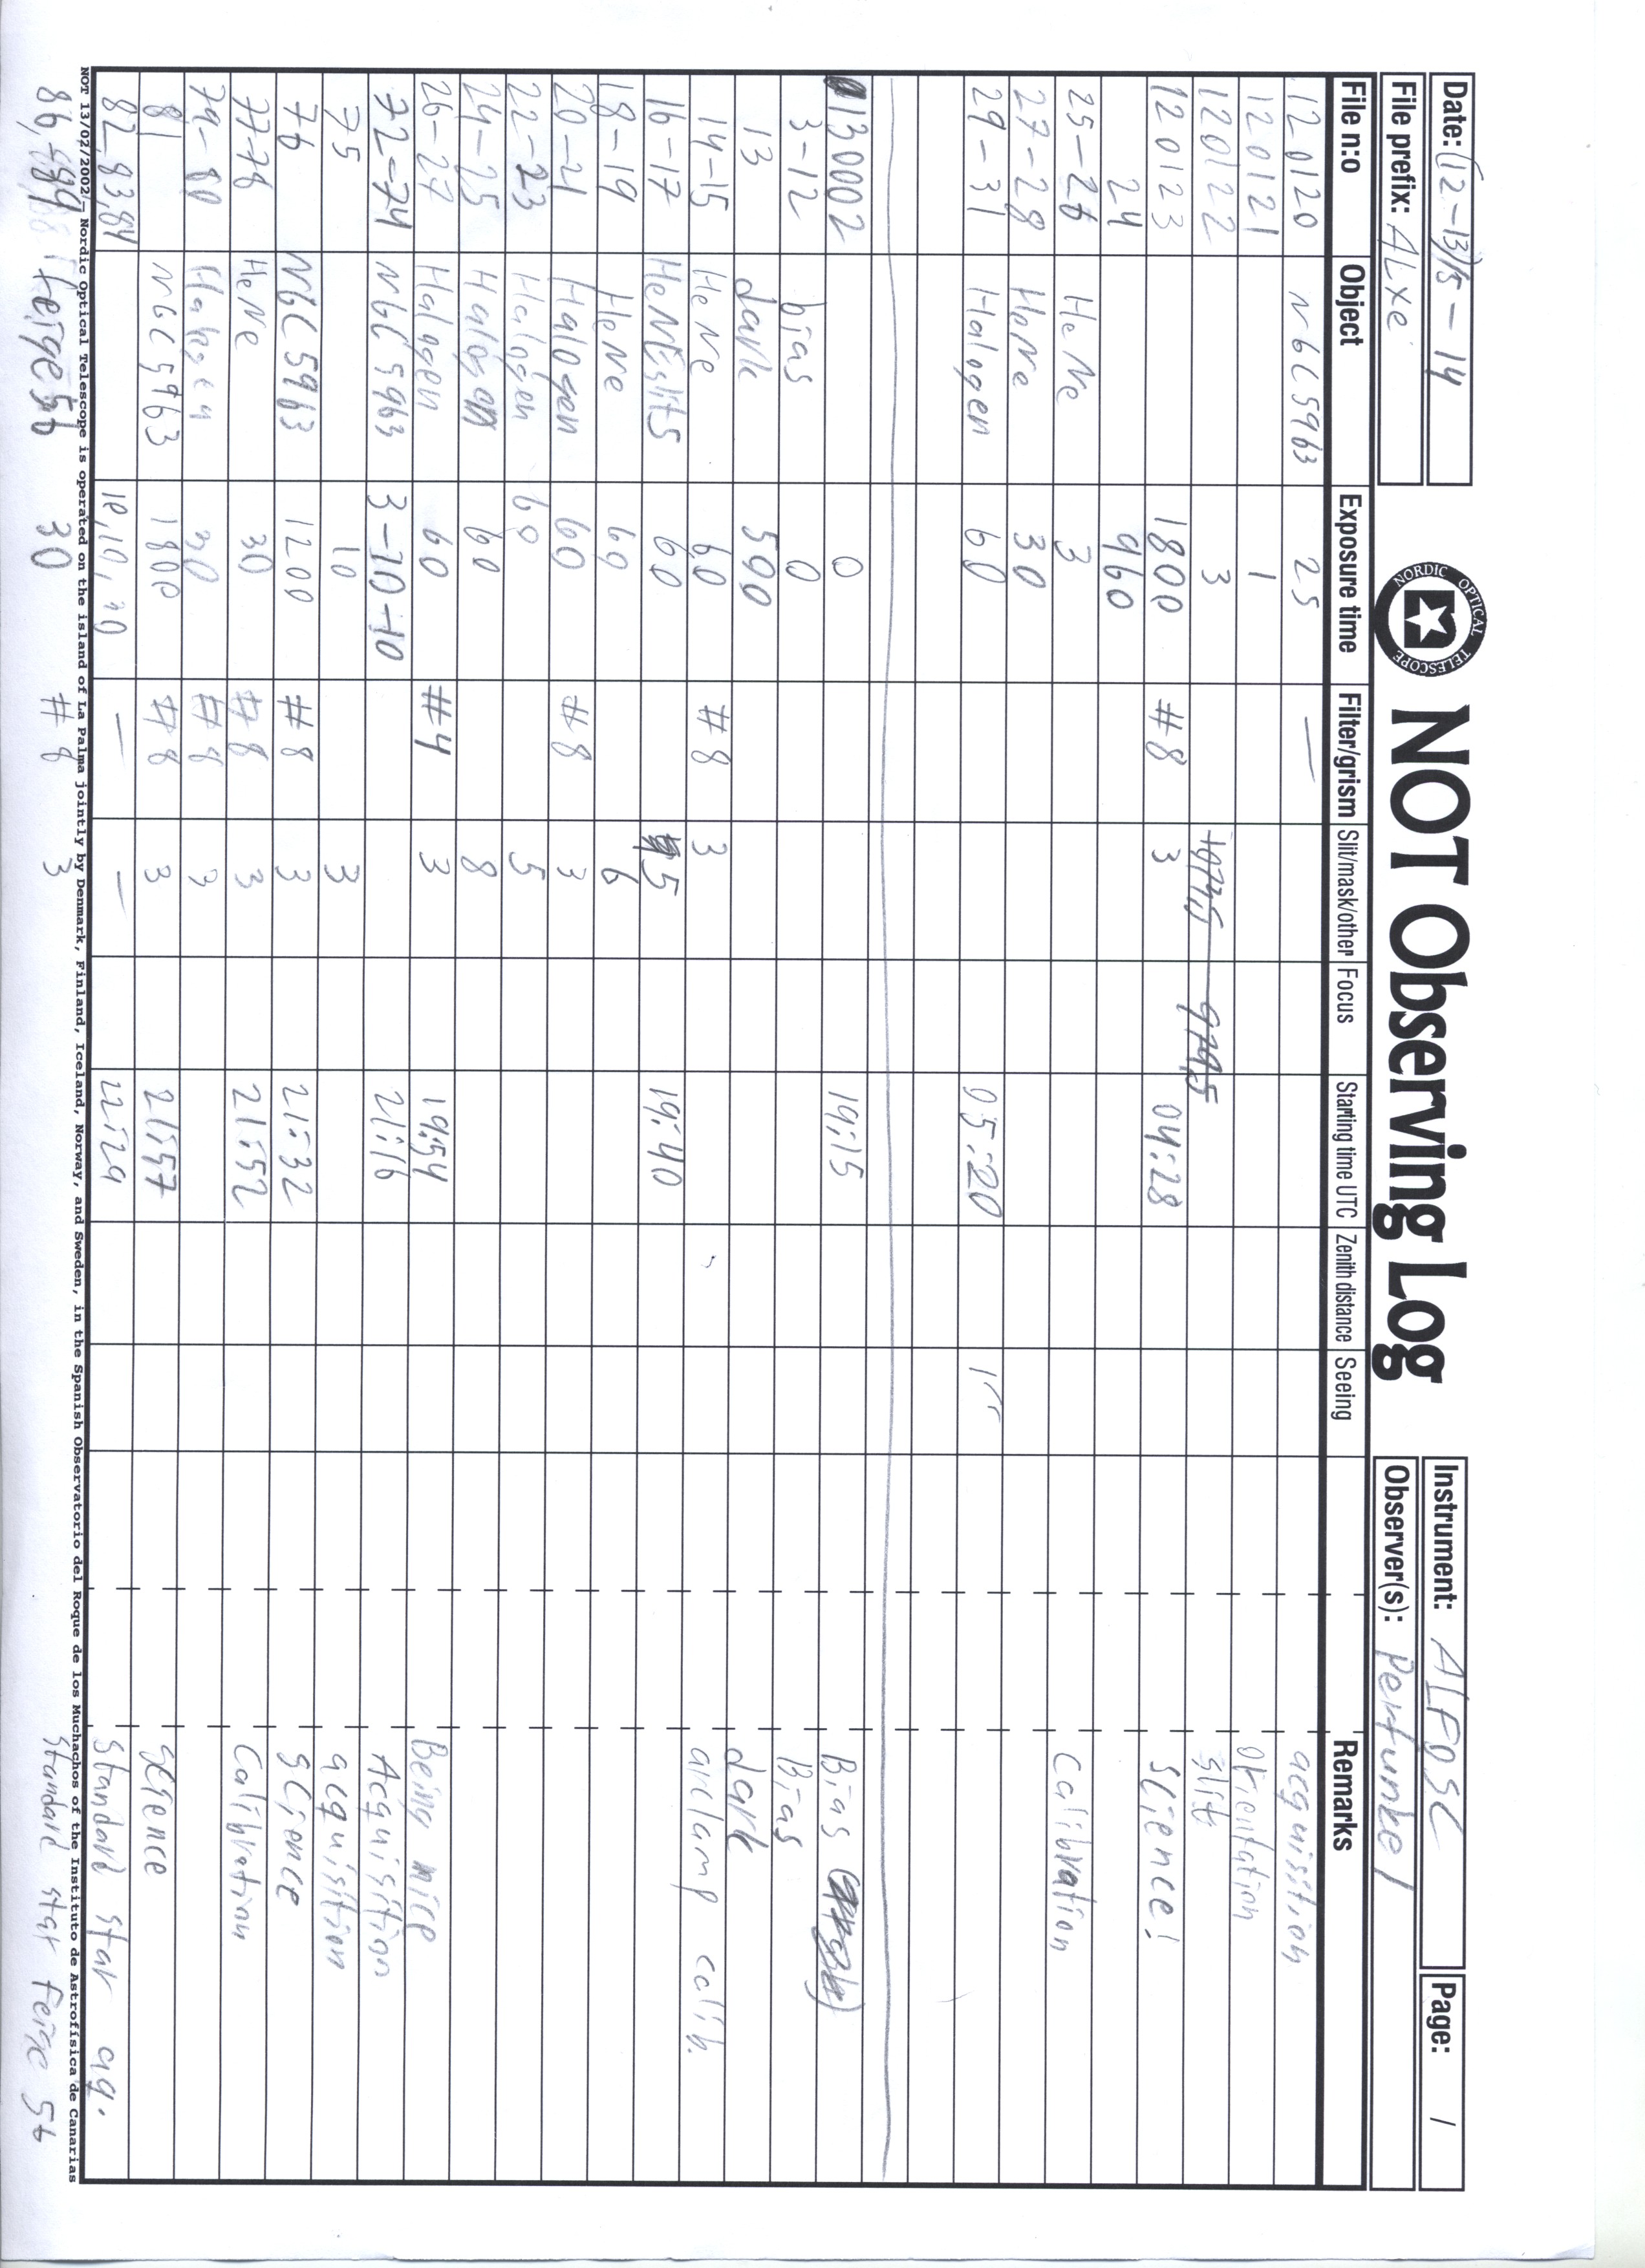 NOT Observing Log
NORDIC OPTICAL TELESCOPE
Date: (12-13)/5-14
File prefix: ALxe
Instrument: ALFOSC
Page: 1
Observer(s): Pertunkel
File n:o Object Exposure time Filter/grism Slit/mask/other Focus Starting time UTC Zenith distance Seeing Remarks
120120 NGC5963 25 — acquisition
120121 1 orientation
120122 3 slit
120123 1800 #8 3 04:28 science!
24 960
25-26 HeNe 3 Calibration
27-28 HeNe 30
29-31 Halogen 60 05:20 1''
130002 0 19:15 Bias
3-12 bias 0 Bias
13 dark 590 dark
14-15 HeNe 60 #8 3 arclamp calib.
16-17 HeNe slit5 60 5 19:40
18-19 HeNe 60 6
20-21 Halogen 60 #8 3
22-23 Halogen 60 5
24-25 Halogen 60 8
26-27 Halogen 60 #4 3 19:54 Being nice
72-74 NGC5963 3-10-10 21:16 Acquisition
75 10 3 acquisition
76 NGC5963 1200 #8 3 21:32 science
77-78 HeNe 30 #8 3 21:52 Calibration
79-80 Halogen 30 #8 3
81 NGC5963 1800 #8 3 21:57 science
82-83,84 10,10,10 — — 22:29 standard star aq.
NOT 13/02/2002/— Nordic Optical Telescope is operated on the island of La Palma jointly by Denmark, Finland, Iceland, Norway, and Sweden, in the Spanish Observatorio del Roque de los Muchachos of the Instituto de Astrofisica de Canarias
Feige56 30 #8 3 standard star Feige 56